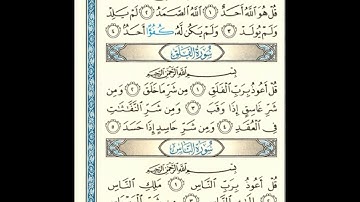 قُلْ هُوَ ٱللَّهُ أَحَدٌ ١ ٱللَّهُ ٱلصَّمَدُ ٢ لَمْ يَلِدْ
وَلَمْ يُولَدْ ٣ وَلَمْ يَكُن لَّهُۥ كُفُوًا أَحَدٌۢ ٤
سُورَةُ ٱلْفَلَقِ
بِسْمِ ٱللَّهِ ٱلرَّحْمَٰنِ ٱلرَّحِيمِ
قُلْ أَعُوذُ بِرَبِّ ٱلْفَلَقِ ١ مِن شَرِّ مَا خَلَقَ ٢ وَمِن
شَرِّ غَاسِقٍ إِذَا وَقَبَ ٣ وَمِن شَرِّ ٱلنَّفَّٰثَٰتِ
فِى ٱلْعُقَدِ ٤ وَمِن شَرِّ حَاسِدٍ إِذَا حَسَدَ ٥
سُورَةُ ٱلنَّاسِ
بِسْمِ ٱللَّهِ ٱلرَّحْمَٰنِ ٱلرَّحِيمِ
قُلْ أَعُوذُ بِرَبِّ ٱلنَّاسِ ١ مَلِكِ ٱلنَّاسِ